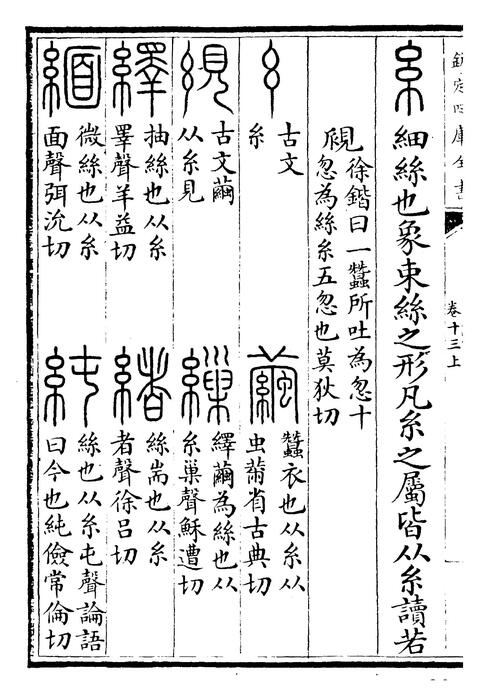 欽定四庫全書
卷十三上
糸 細絲也象束絲之形凡糸之屬皆从糸讀若
覛
徐鍇曰一蠶所吐為忽十
忽為絲糸五忽也莫狄切
古文
糸
繭
蠶衣也从糸从
虫黹省古典切
絸
古文繭
从糸見
繅
繹繭為絲也从
糸巢聲穌遭切
繹
抽絲也从糸
睪聲羊益切
緒
絲耑也从糸
者聲徐呂切
緬
微絲也从糸
面聲弭沇切
純
絲也从糸屯聲論語
曰今也純儉常倫切